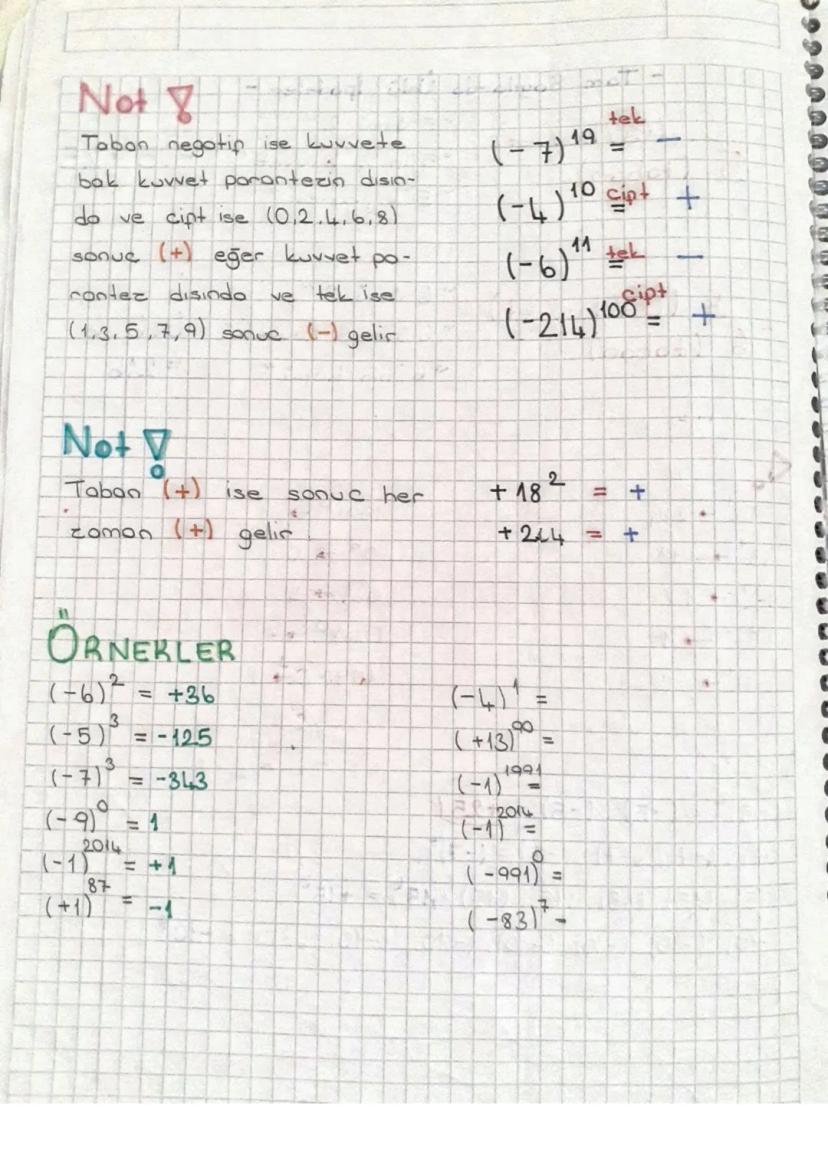 Not !
Taban negatif ise kuvvete
bak kuvvet parantezin dısın-
da ve cift ise (0,2,4,6,8)
sonuc (+) eğer kuvvet pa-
rantez dısında ve tek ise
(1,3,5,7,9) sonuc (-) gelir
(-7)^19 = tek -
(-4)^10 = cift +
(-6)^11 = tek -
(-214)^100 = cift +
Not !
Taban (+) ise sonuc her
zaman (+) gelir.
+18^2 = +
+214 = +
ÖRNEKLER
(-6)^2 = +36
(-5)^3 = -125
(-7)^3 = -343
(-9)^0 = 1
(-1)^2014 = +1
(+1)^87 = -1
(-4)^1 =
(+13)^90 =
(-1)^1991 =
(-1)^2014 =
(-991)^0 =
(-83)^7 -